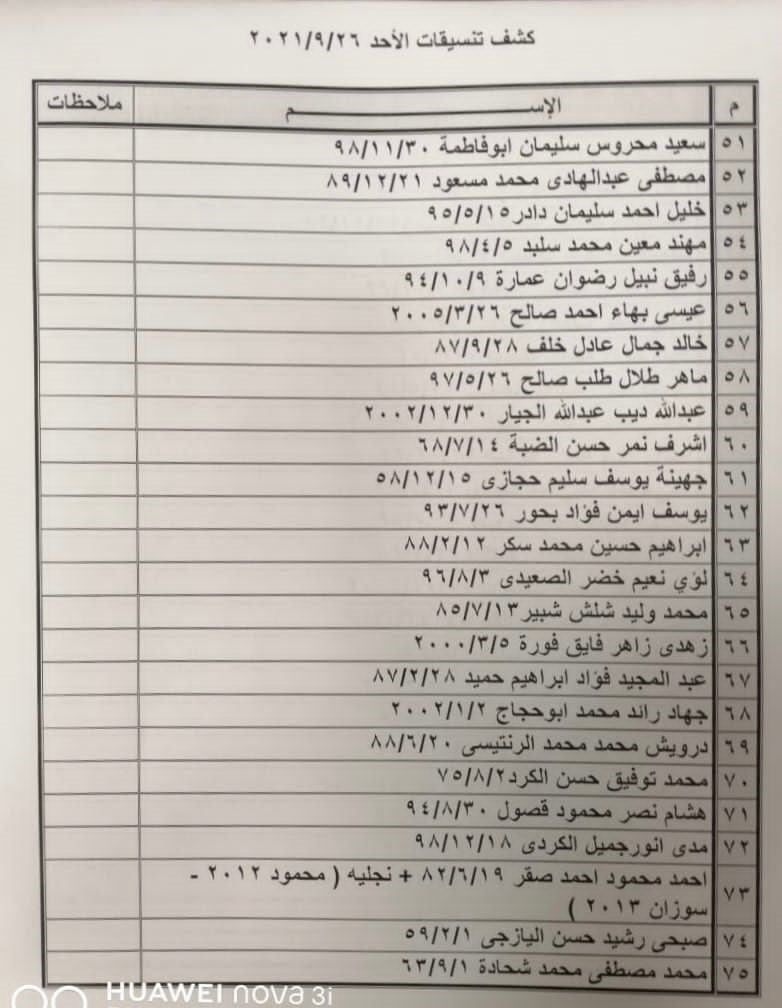 كشف تنسيقات الأحد ٢٠٢١/٩/٢٦
م الإســـــــم ملاحظات
٥١ سعيد محروس سليمان ابوفاطمة ٩٨/١١/٣٠
٥٢ مصطفى عبدالهادى محمد مسعود ٨٩/١٢/٢١
٥٣ خليل احمد سليمان دادر ٩٥/٥/١٥
٥٤ مهند معين محمد سلبد ٩٨/٤/٥
٥٥ رفيق نبيل رضوان عمارة ٩٤/١٠/٩
٥٦ عيسى بهاء احمد صالح ٢٠٠٥/٣/٢٦
٥٧ خالد جمال عادل خلف ٨٧/٩/٢٨
٥٨ ماهر طلال طلب صالح ٩٧/٥/٢٦
٥٩ عبدالله ديب عبدالله الجيار ٢٠٠٢/١٢/٣٠
٦٠ اشرف نمر حسن الضبة ٦٨/٧/١٤
٦١ جهينة يوسف سليم حجازى ٥٨/١٢/١٥
٦٢ يوسف ايمن فؤاد بحور ٩٣/٧/٢٦
٦٣ ابراهيم حسين محمد سكر ٨٨/٢/١٢
٦٤ لؤي نعيم خضر الصعيدى ٩٦/٨/٣
٦٥ محمد وليد شلش شبير ٨٥/٧/١٣
٦٦ زهدى زاهر فايق فورة ٢٠٠٠/٣/٥
٦٧ عبد المجيد فؤاد ابراهيم حميد ٨٧/٢/٢٨
٦٨ جهاد رائد محمد ابوحجاج ٢٠٠٢/١/٢
٦٩ درويش محمد محمد الرنتيسى ٨٨/٦/٢٠
٧٠ محمد توفيق حسن الكرد ٧٥/٨/٢
٧١ هشام نصر محمود قصول ٩٤/٨/٣٠
٧٢ مدى انورجميل الكردى ٩٨/١٢/١٨
٧٣ احمد محمود احمد صقر ٨٢/٦/١٩ + نجليه ( محمود ٢٠١٢ -
سوزان ٢٠١٣ )
٧٤ صبحى رشيد حسن اليازجى ٥٩/٢/١
٧٥ محمد مصطفى محمد شحادة ٦٣/٩/١
HUAWEI nova 3i